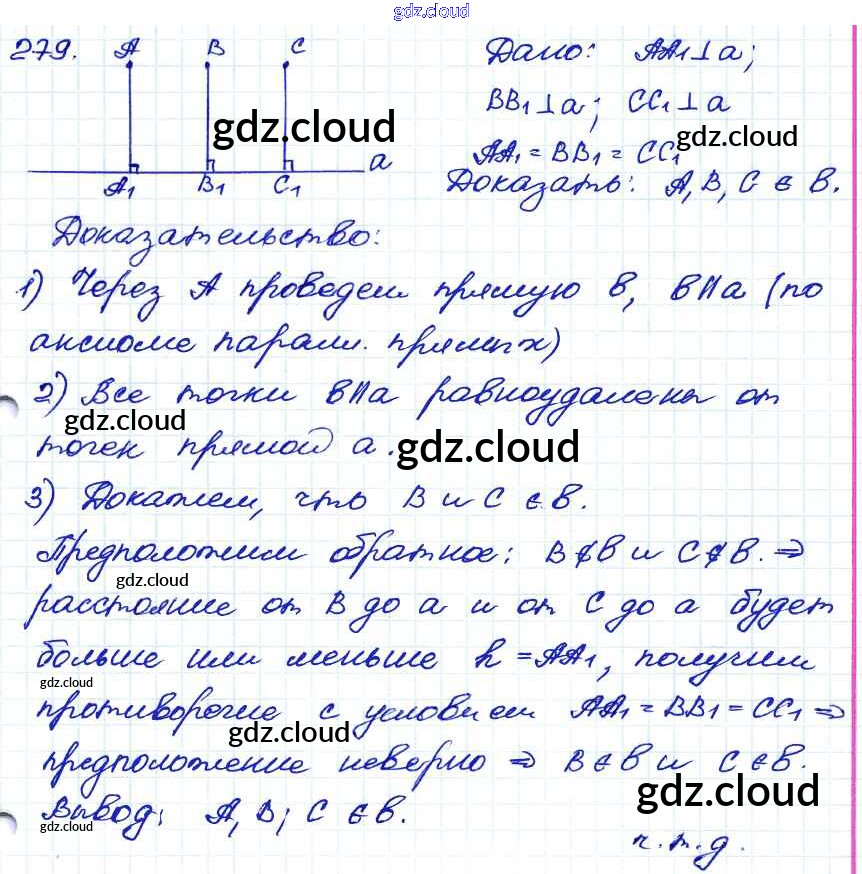 gdz.cloud
279. A B C
a
A₁ B₁ C₁
Дано: AA₁⊥a;
BB₁⊥a; CC₁⊥a
AA₁ = BB₁ = CC₁
Доказать: A, B, C ∈ в.
gdz.cloud
gdz.cloud
Доказательство:
1) Через A проведем прямую в, в||a (по
аксиоме паралл. прямых)
2) Все точки в||a равноудалены от
gdz.cloud
точек прямой a.
gdz.cloud
3) Докажем, что B и C ∈ в.
Предположим обратное: B∉в и C∉в. ⇒
gdz.cloud
расстояние от B до a и от C до a будет
больше или меньше h = AA₁, получим
gdz.cloud
противоречие с условием AA₁ = BB₁ = CC₁ ⇒
gdz.cloud
предположение неверно ⇒ B∈в и C∈в.
gdz.cloud
Вывод: A, B; C ∈ в.
gdz.cloud
ч.т.д.